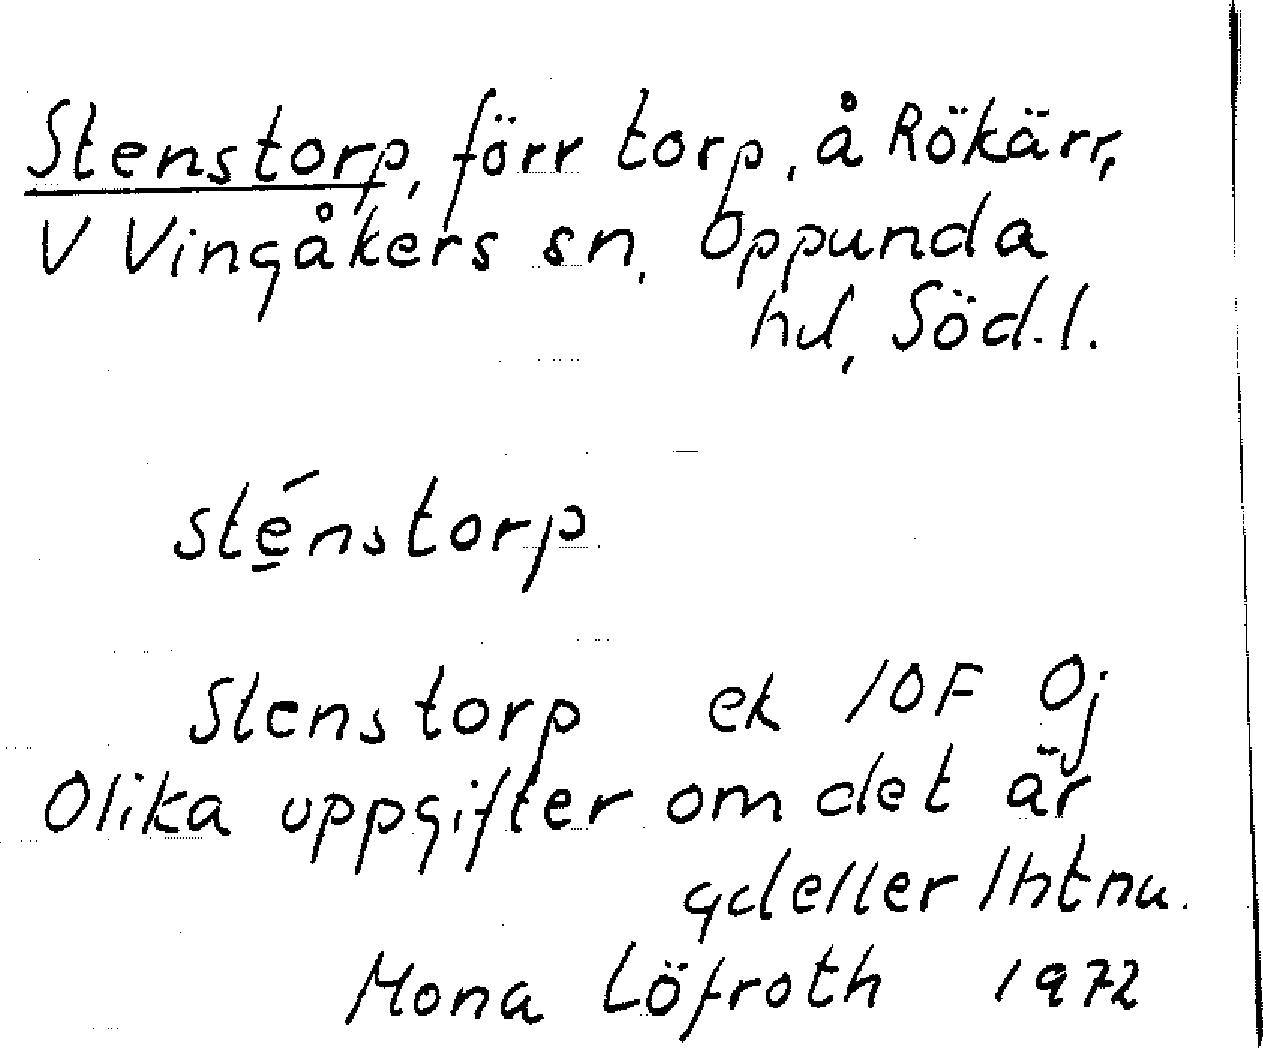 Stenstorp, förr torp, å Rökärr,
V Vingåkers sn, Oppunda
hd, Söd.l.
sté̱nstorp
Stenstorp ek 10F Oj
Olika uppgifter om det är
gd eller lht nu.
Mona Löfroth 1972